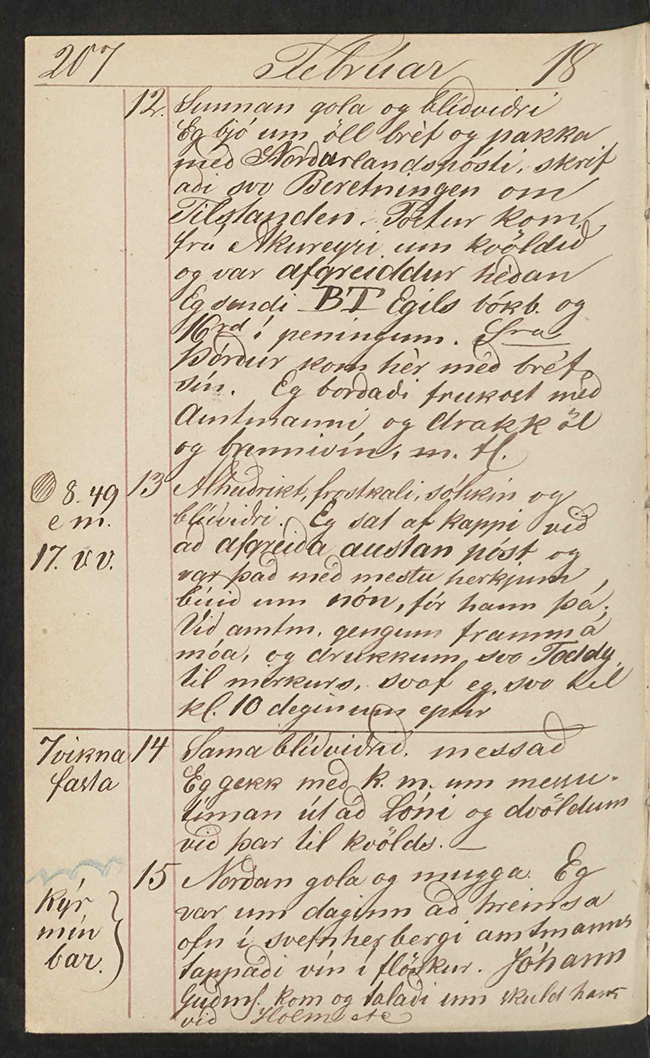 207 Februar 18
12. Sunnan gola og blídvidri
Eg bjó um öll bréf og pakka
med Nordurlandspósti, skrif
adi svo Beretningen om
Tilstanden. Póstur kom
frá Akureyri um kvöldid
og var afgreiddur hédan
Eg sendi BT Egils bókb. og
16rd í peningum. Sra
Þórdur kom hér med bréf
sín. Eg bordadi frukost med
Amtmanni og drakk öl
og brennivín, m. fl.
8.49
e m.
17. v v.
13 Alheidrikt, frostkali, sólskin og
blídvidri. Eg sat af kappi vid
ad afgreida austan póst og
var það med mestu herkjum
búid um nón, fór hann þá.
Vid amtm. gengum framm á
móa, og drukkum svo Toddy
til mirkurs, svaf eg svo til
kl. 10 deginum eptir
7 vikna
fasta
14 Sama blídvidrid. messad
Eg gekk med k. m. um messu-
tíman út ad Lóni og dvöldum
vid þar til kvölds. —
Kýr
mín
bar.
15 Nordan gola og mugga. Eg
var um daginn ad hreinsa
ofn í svefnherbergi amtmanns
tappadi vín í flöskur. Jóhann
Gudms. kom og taladi um skuld hans
vid Holm etc